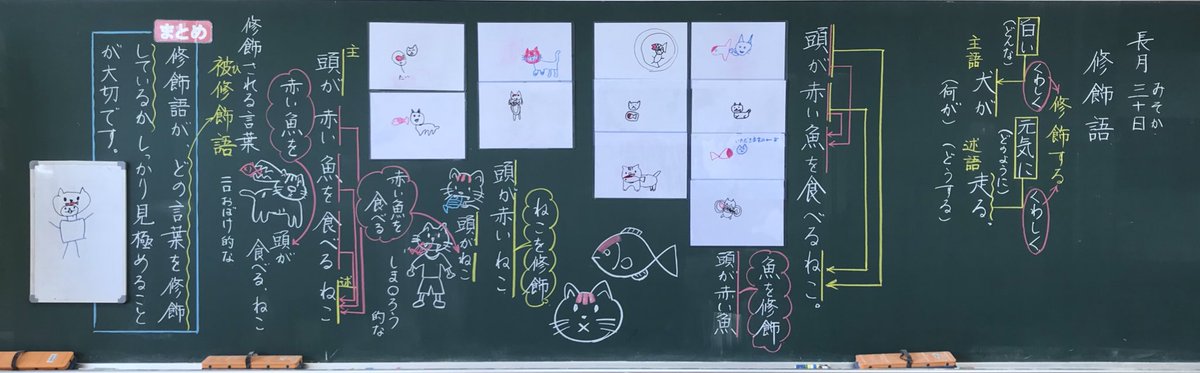 長月 三十日
みそか
修飾語
修飾する
くわしく
くわしく
白い
(どんな)
犬が
主語
(何が)
元気に
(どのように)
走る。
述語
(どうする)
頭が赤い魚を食べるねこ。
魚を修飾
頭が赤い魚
ねこを修飾
頭が赤いねこ
頭がねこ
赤い魚を
食べる
しま〇ろう
的な
主
頭が赤い魚を食べるねこ
述
赤い魚を
頭が
食べる、ねこ
二口おばけ的な
修飾される言葉
被修飾語
ひ
まとめ
修飾語が、どの言葉を修飾
しているか、しっかり見極めること
が大切です。